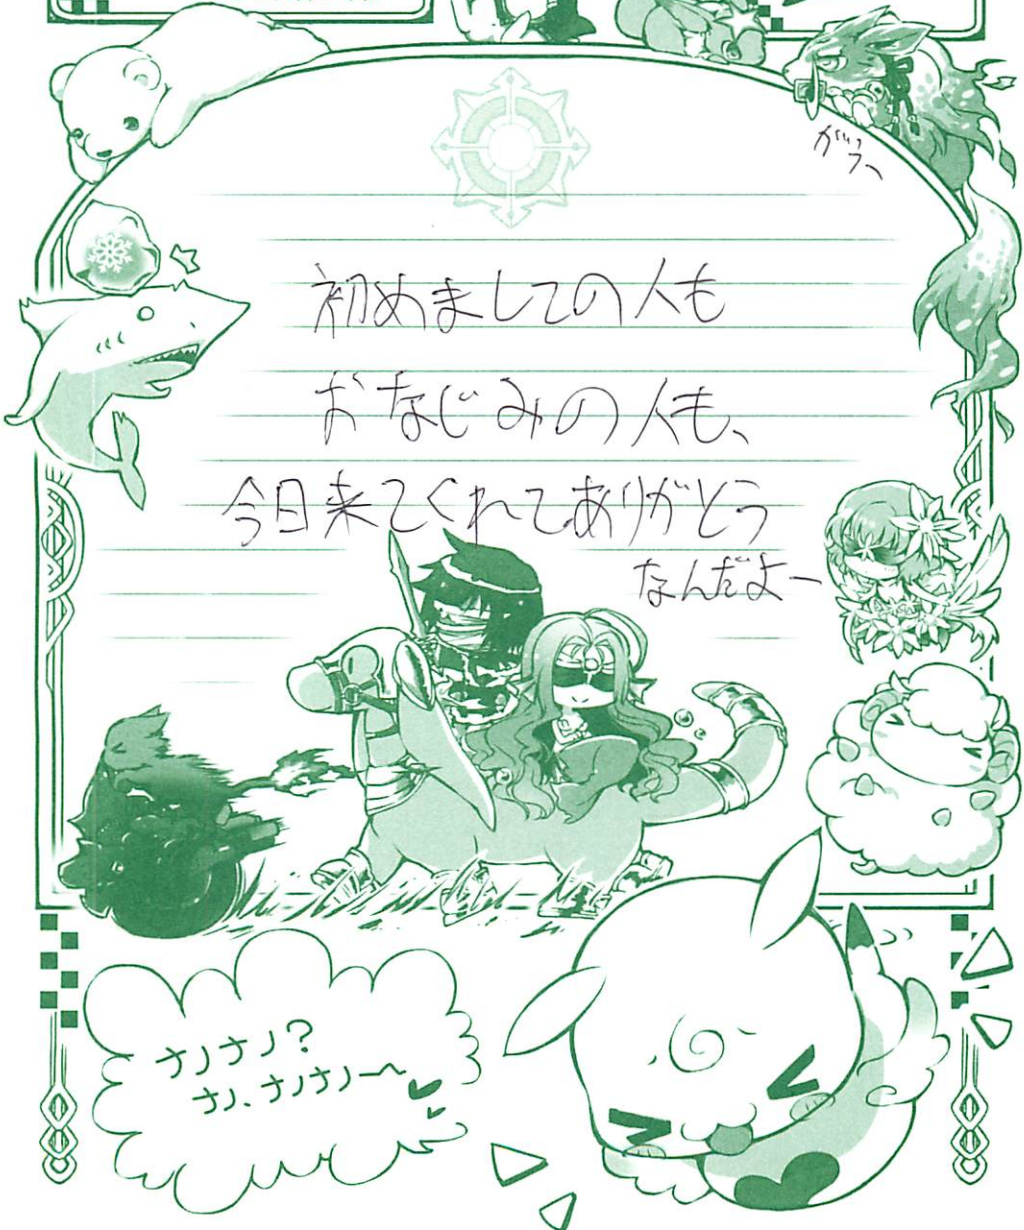 がうー
初めましての人も
おなじみの人も、
今日来てくれてありがとう
なんだよー
ナノナノ?
ナノ、ナノナノー〜